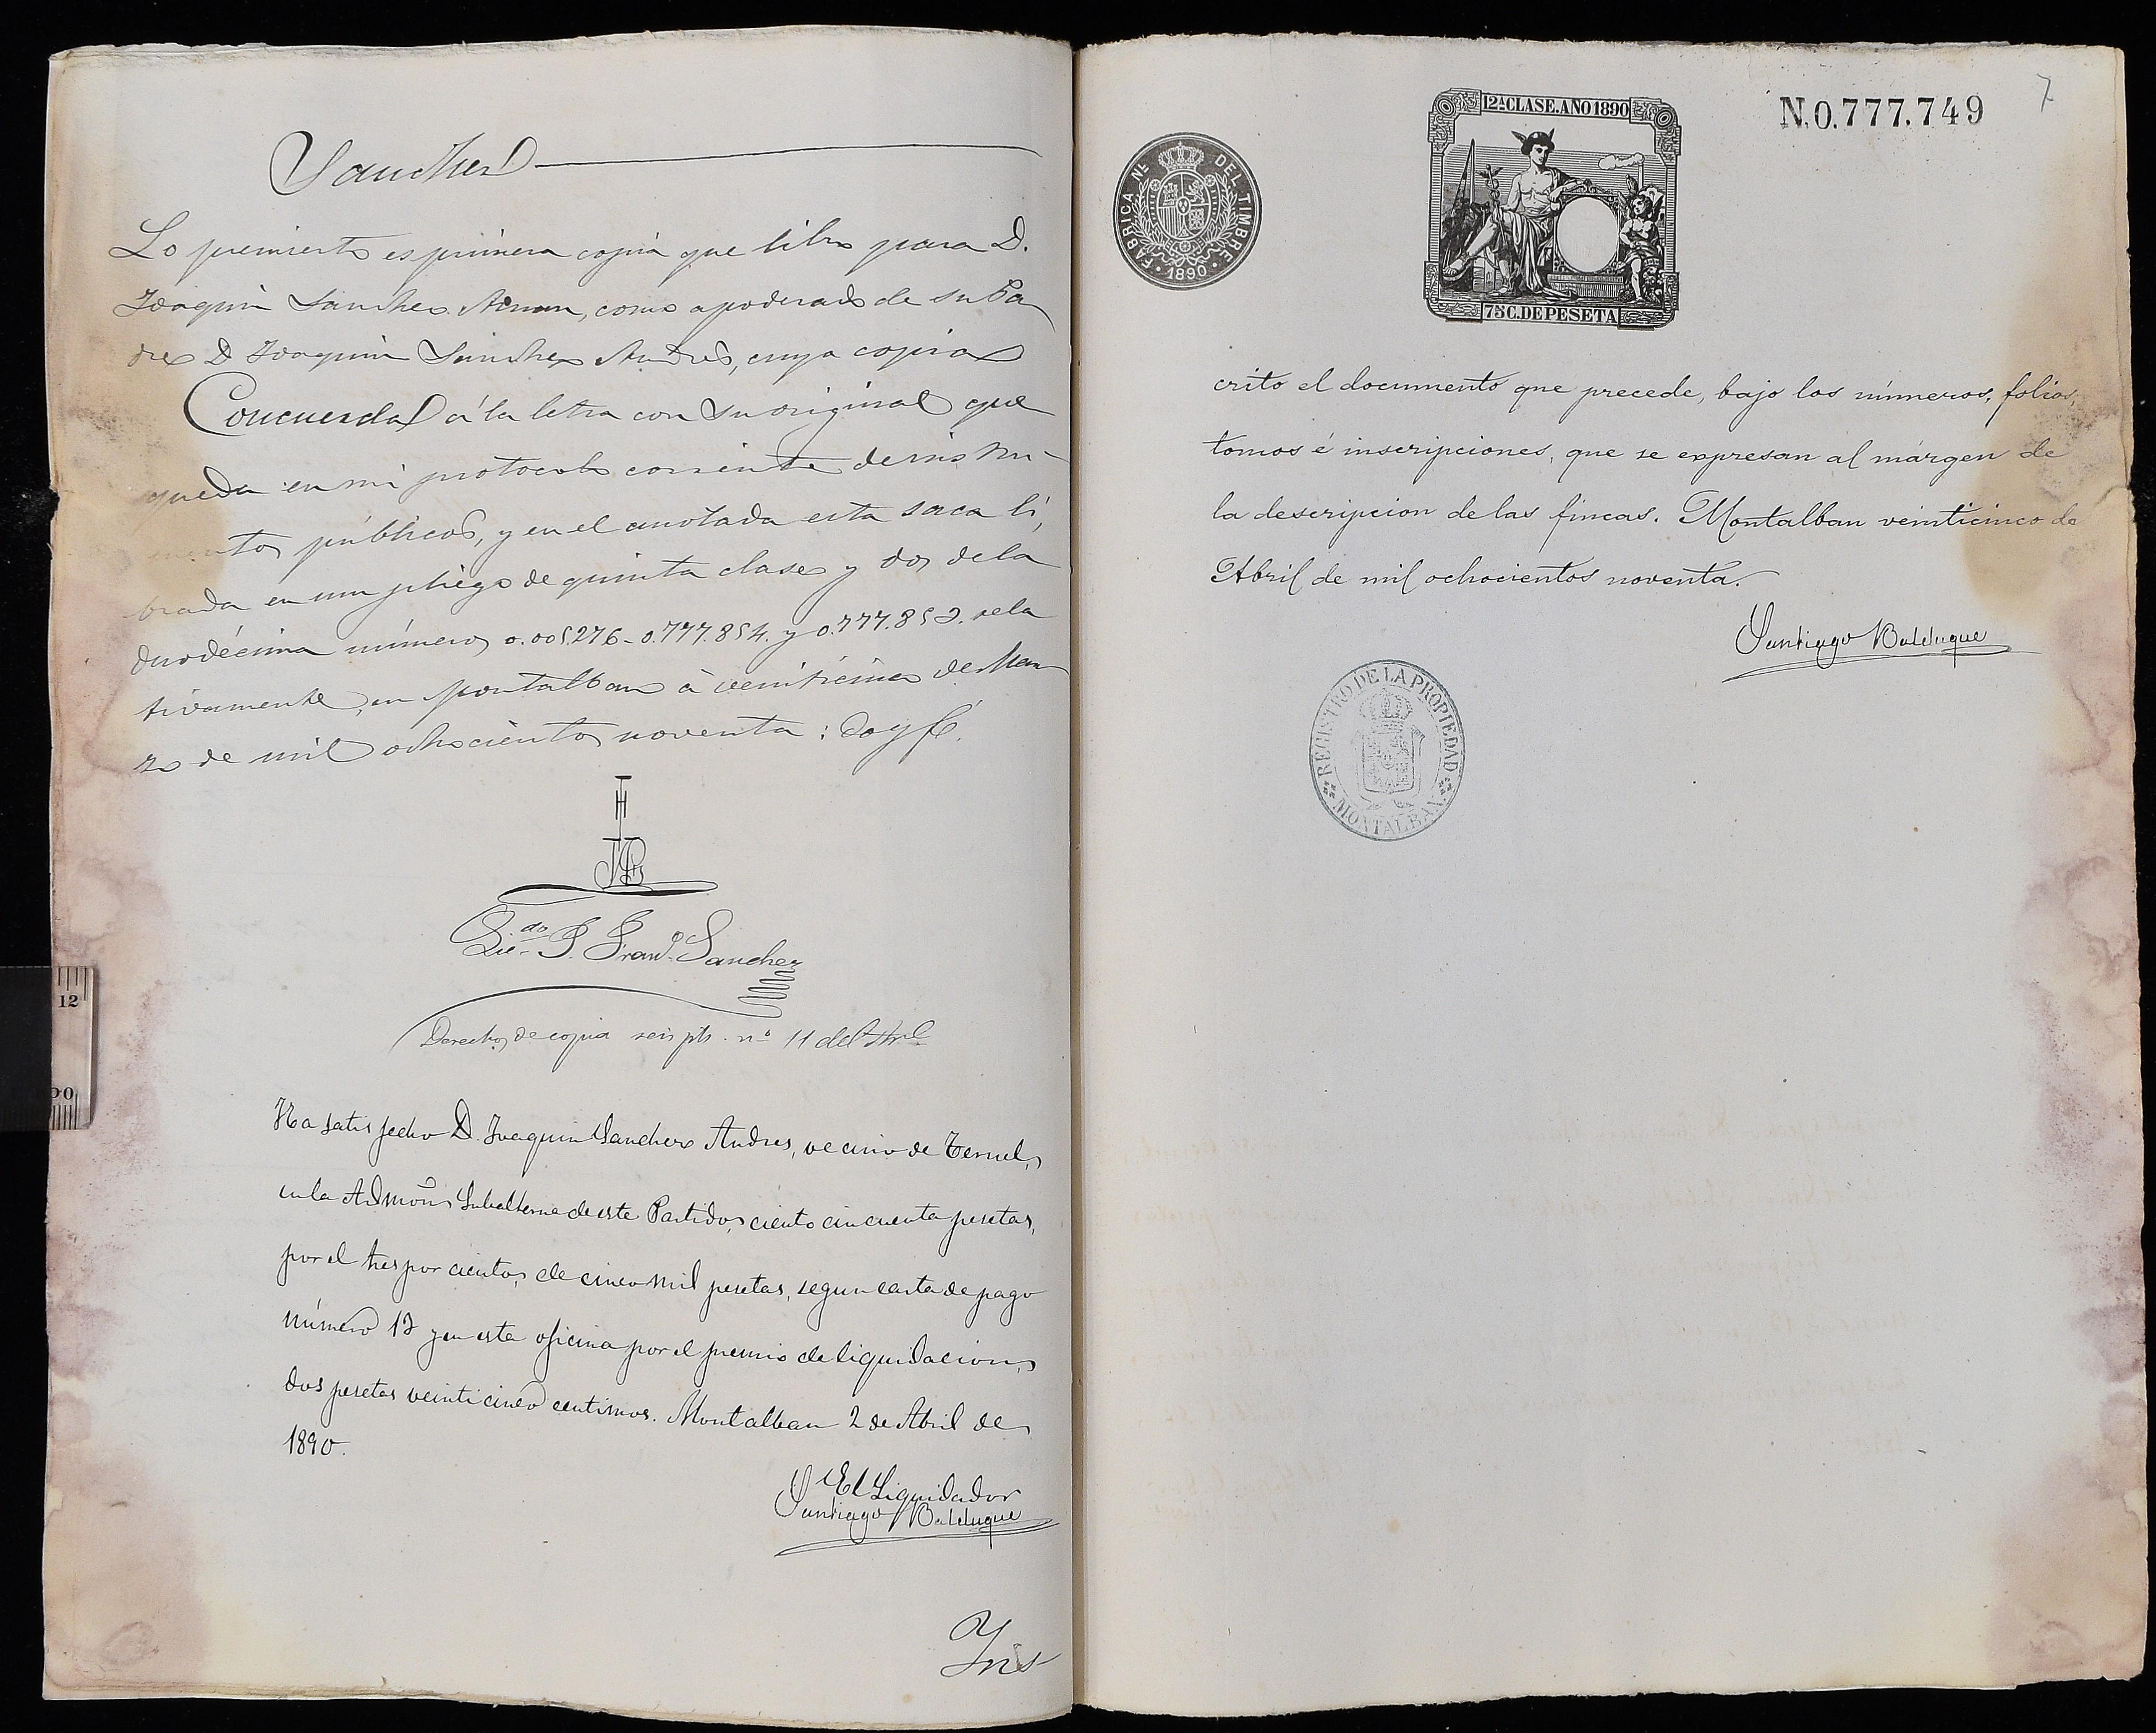 Sanchez
Lo preinserto es primera copia que libro para D.
Joaquin Sanchez, como apoderado de su Pa
dre D Joaquin Sanchez Andres, cuya copia
Concuerda á la letra con su original que
queda en mi protocolo corriente de ins tru-
mentos públicos, y en el anotada esta saca li,
brada en un pliego de quinta clase y dos de la
duodécima números 0.005276-0.777.854. y 0.777.852. rela
tivamente, en Montalban à veinticinco de Mar
zo de mil ochocientos noventa: doy fé.
Lic.do J. Fran.o Sanchez
Derechos de copia seis pts. nº 11 del Arcl
Ha satisfecho D. Joaquin Sanchez Andres, vecino de Teruel,
en la Admon Subalterna de este Partido, ciento cincuenta pesetas,
por el tres por ciento, de cinco mil pesetas, segun carta de pago
número 13 y en esta oficina por el premio de liquidacion,
dos pesetas veinticinco centimos. Montalban 2 de Abril de
1890.
El Liquidador
Santiago Balduque
Ins
7
N.0.777.749
12ª CLASE. AÑO 1890
75 C. DE PESETA
FABRICA NL. DEL TIMBRE
1890
crito el documento que precede, bajo los números, folios,
tomos é inscripciones, que se expresan al márgen de
la descripcion de las fincas. Montalban veinticinco de
Abril de mil ochocientos noventa.
Santiago Balduque
REGISTRO DE LA PROPIEDAD
MONTALBAN
12